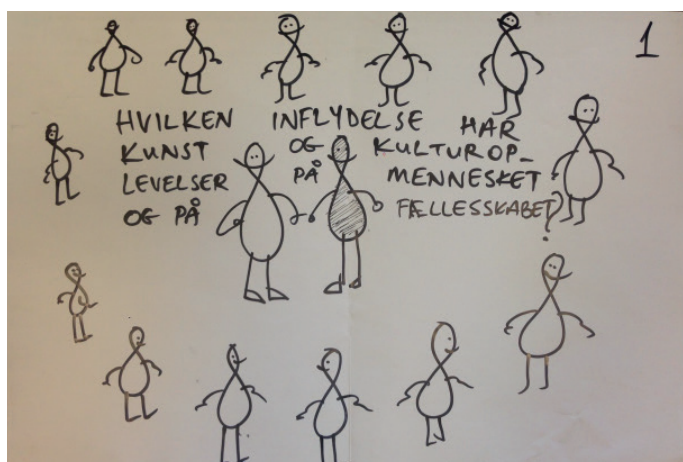 1
HVILKEN INFLYDELSE HAR
KUNST OG KULTUROP-
LEVELSER PÅ MENNESKET
OG PÅ FÆLLESSKABET?